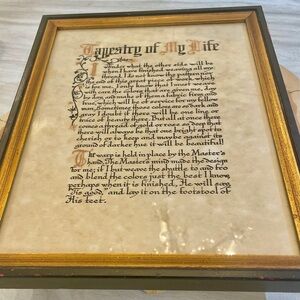 Tapestry of My Life
I wonder what the other side will be
when I have finished weaving all my
thread. I do not know the pattern nor
the end of this great piece of work which
is for me. I only know that I must weave
with care the colors that are given me, day
by day, and make of them a fabric firm and
true, which will be of service for my fellow
man. Sometimes those colors are so dark and
gray I doubt if there will be one line or
trace of beauty there. But all at once there
comes a thread of gold or rose so deep that
there will always be that one bright spot to
cherish or to keep and maybe against its
ground of darker hue it will be beautiful!
The warp is held in place by the Master's
hand. The Master's mind made the design
for me; if I but weave the shuttle to and fro
and blend the colors just the best I know,
perhaps when it is finished, He will say
"'Tis good" and lay it on the footstool of
His feet.